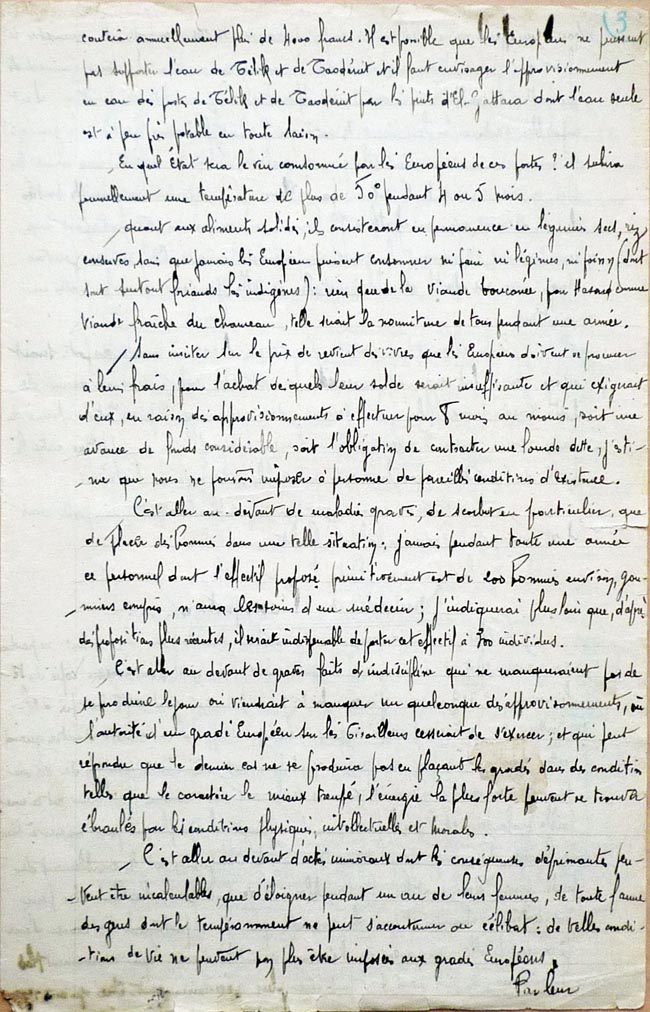 3
coutera annuellement plus de 4000 francs. Il est possible que les Européens ne puissent
pas supporter l'eau de Télik et de Taodénit et il faut envisager l'approvisionnement
en eau des postes de Télik et de Taodénit par les puits d'El-Gattara dont l'eau seule
est à peu près potable en toute saison.
En quel état sera le vin consommé par les Européens de ces postes ? il subira
journellement une température de plus de 50° pendant 4 ou 5 mois.
quant aux aliments solides, ils consisteront en permanence en légumes secs, riz
conserves, sans que jamais les Européens puissent consommer ni pain ni légumes, ni poisson (dont
sont surtout friands les indigènes) : rien que de la viande boucanée, par hasard comme
viande fraîche du chameau, telle serait la nourriture de tous pendant une année.
Sans insister sur le prix de revient des vivres que les Européens doivent se procurer
à leurs frais, pour l'achat desquels leur solde serait insuffisante et qui exigerait
d'eux, en raison des approvisionnements à effectuer pour 8 mois au moins, soit une
avance de fonds considérable, soit l'obligation de contracter une lourde dette, j'esti-
me que nous ne pouvons imposer à personne de pareilles conditions d'existence.
C'est aller au-devant de maladies graves, de scorbut en particulier, que
de placer des hommes dans une telle situation. Jamais pendant toute une année
ce personnel dont l'effectif proposé primitivement est de 200 hommes environ, gou-
miers compris, n'aura les soins d'un médecin ; j'indiquerai plus loin que, d'après
des propositions plus récentes, il serait indispensable de porter cet effectif à 300 individus.
C'est aller au devant de graves faits d'indiscipline qui ne manqueraient pas de
se produire le jour où viendrait à manquer un quelconque des approvisionnements, où
l'autorité d'un gradé Européen sur les tirailleurs cesserait de s'exercer ; et qui peut
répondre que le dernier cas ne se produira pas en plaçant les gradés dans des conditions
telles que le caractère le mieux trempé, l'énergie la plus forte peuvent se trouver
ébranlés par les conditions physiques, intellectuelles et morales.
C'est aller au devant d'actes immoraux dont les conséquences déprimantes peu-
vent être incalculables, que d'éloigner pendant un an de leurs femmes, de toute femme
des gens dont le tempérament ne peut s'accoutumer au célibat : de telles condi-
tions de vie ne peuvent pas plus être imposées aux gradés Européens.
Par leur